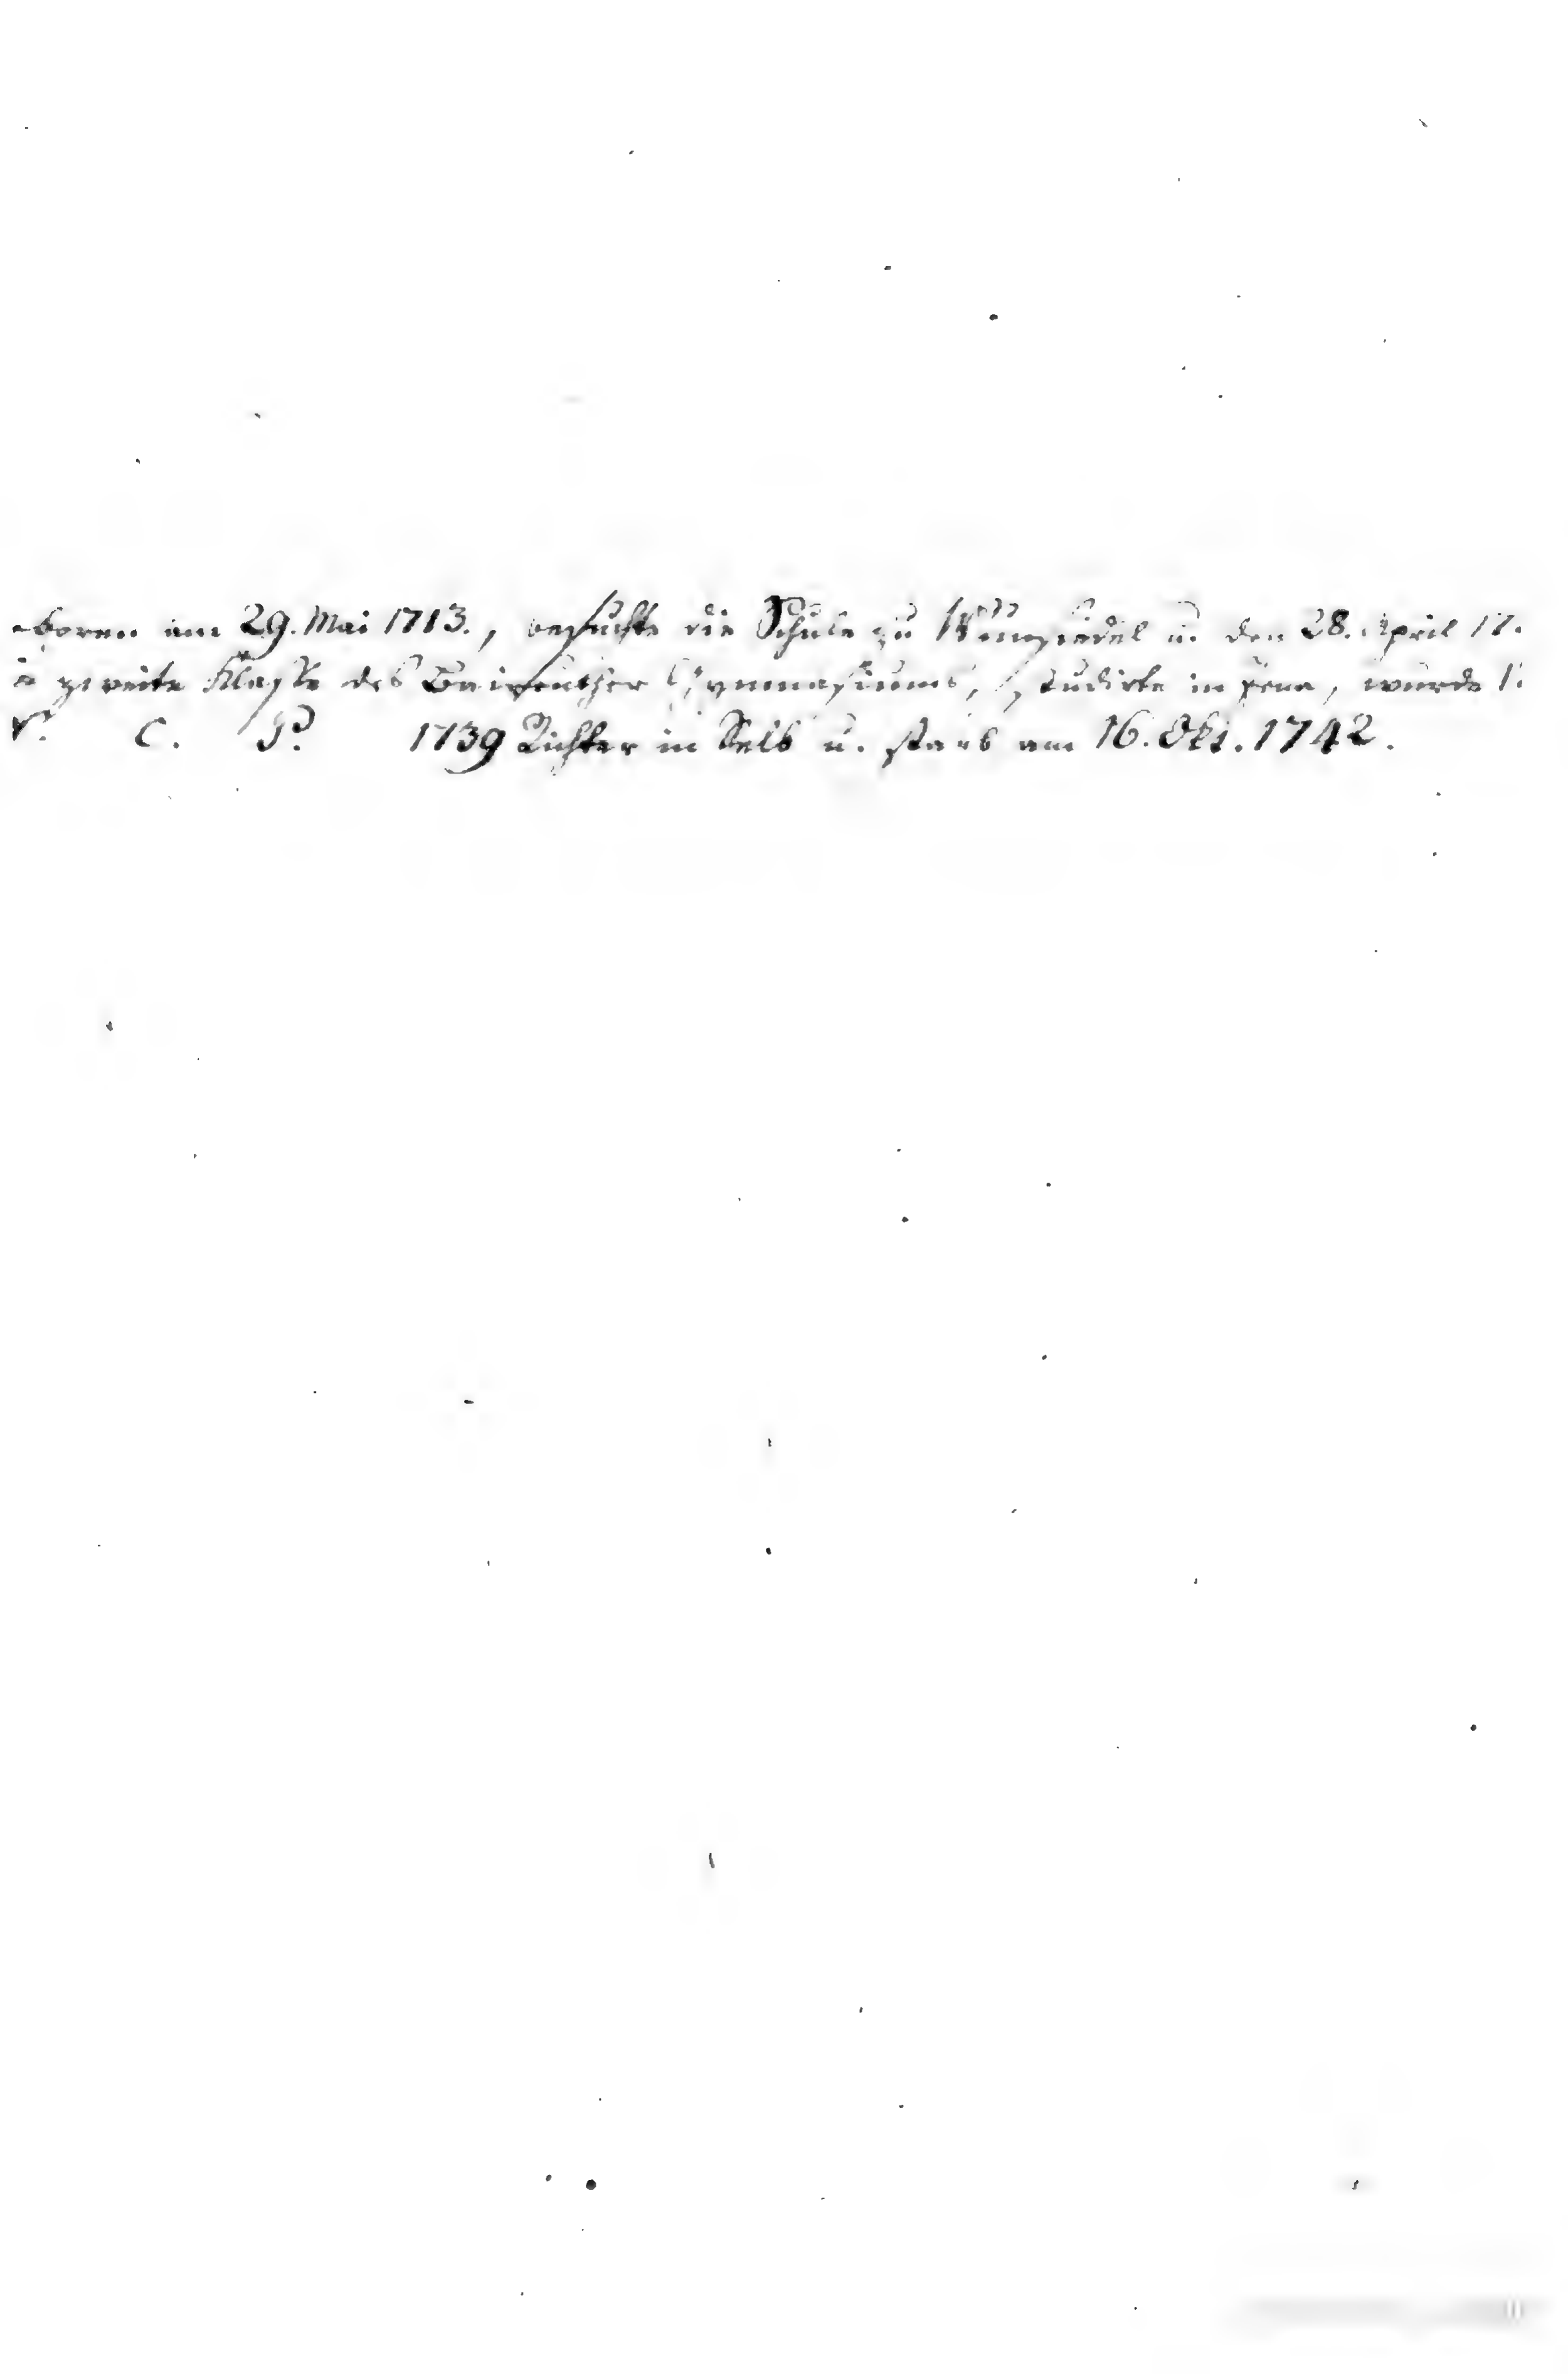 boren am 29. Mai 1713., besuchte die Schule zu Wunsiedel u. den 28. April 17.
zweite Klasse des Baireuther Gymnasiums, studirte in Jena, wurde 1.
C. P. 1739 Richter in Selb u. starb am 16. Okt. 1742.